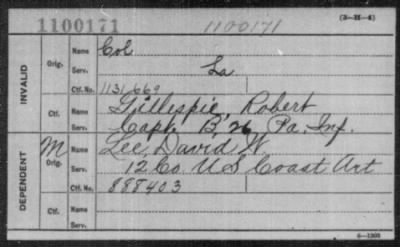 1100171 1100171 (3—H—4)
INVALID
Orig. Name Col
Serv. La
Ctf. No. 1131,669
Ctf. Name Gillespie, Robert
Serv. Capt. "B", 26 Pa. Inf.
DEPENDENT
M Orig. Name Lee, David W.
Serv. 12 Co. U.S. Coast Art
Ctf. No. 888403
Ctf. Name
Serv.